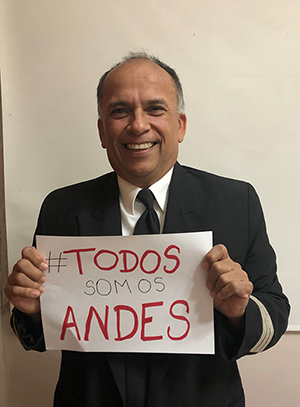 #TODOS
SOMOS
ANDES